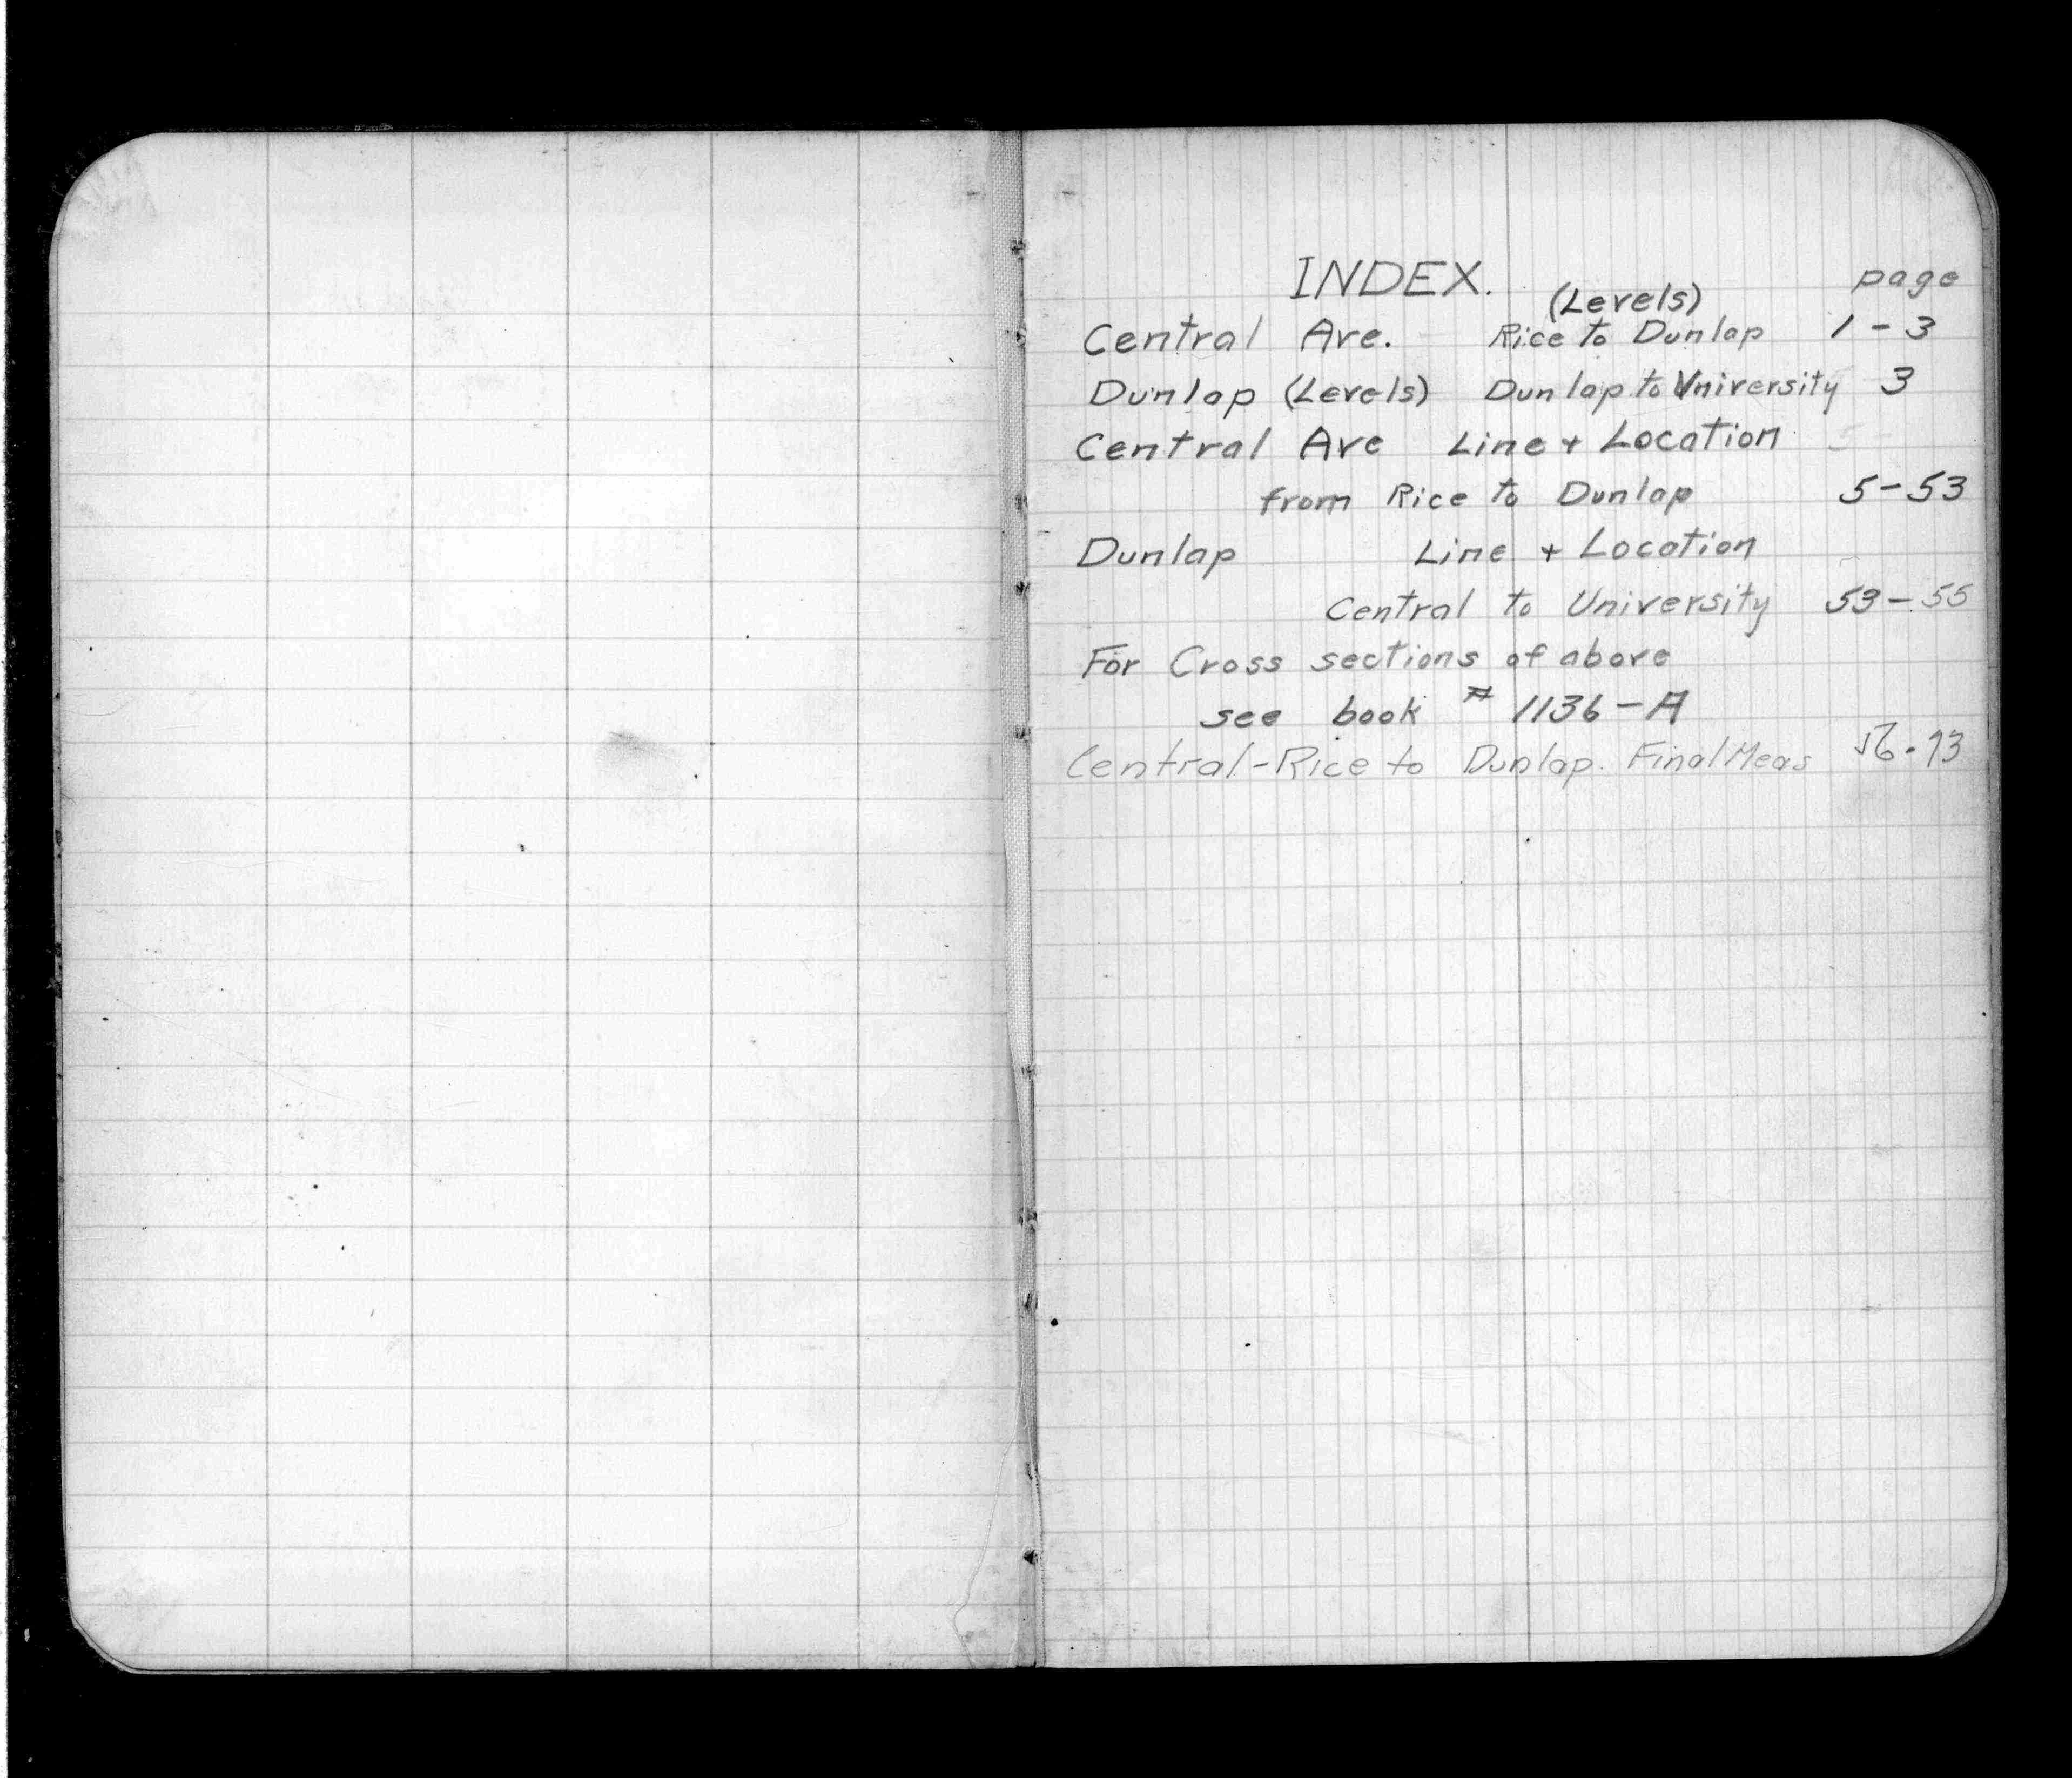 INDEX. page
(Levels)
Central Ave. Rice to Dunlap 1 - 3
Dunlap (Levels) Dunlap to University 3
Central Ave Line + Location
from Rice to Dunlap 5 - 53
Dunlap Line + Location
Central to University 53 - 55
For Cross sections of above
see book # 1136 - A
Central - Rice to Dunlap. Final Meas 56 - 93